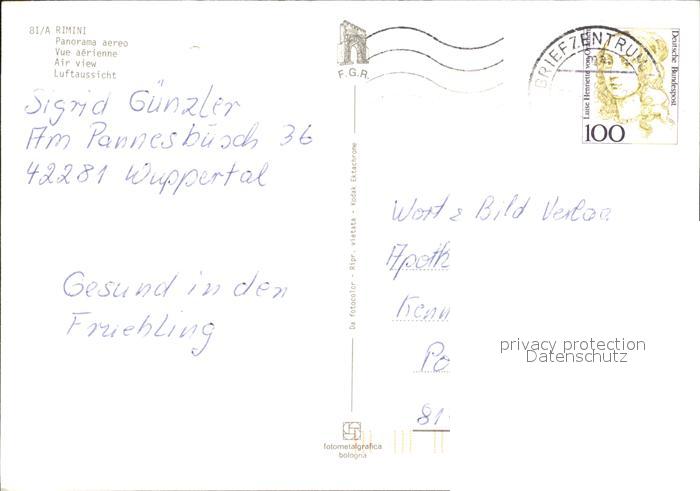 81/A RIMINI
Panorama aereo
Vue aérienne
Air view
Luftaussicht
Sigrid Günzler
Am Pannesbusch 36
42281 Wuppertal
Gesund in den
Fruehling
F.G.R.
Da fotocolor - Ripr. vietata - Kodak Ektachrome
fotometalgrafica
bologna
BRIEFZENTRUM
Deutsche Bundespost
Luise Henriette von Oranien
100
Wort & Bild Verlag
Apoth
Kenn
Po
81
privacy protection
Datenschutz